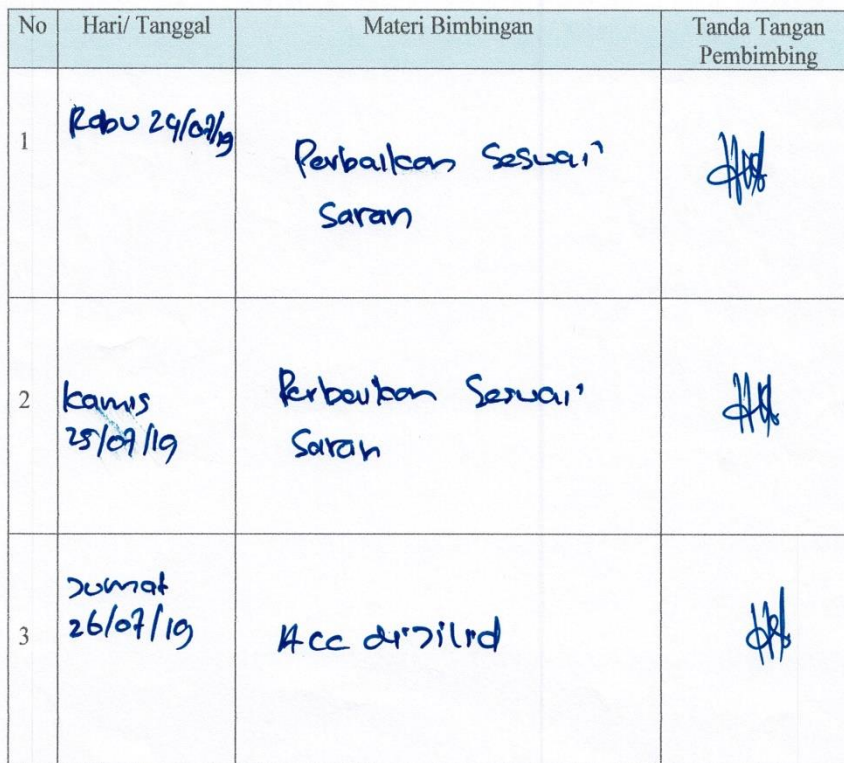 No Hari/ Tanggal Materi Bimbingan Tanda Tangan
Pembimbing
1 Rabu 24/07/19 Perbaikan Sesuai
Saran
2 Kamis Perbaikan Sesuai
25/07/19 Saran
3 Jumat
26/07/19 Acc dijilid